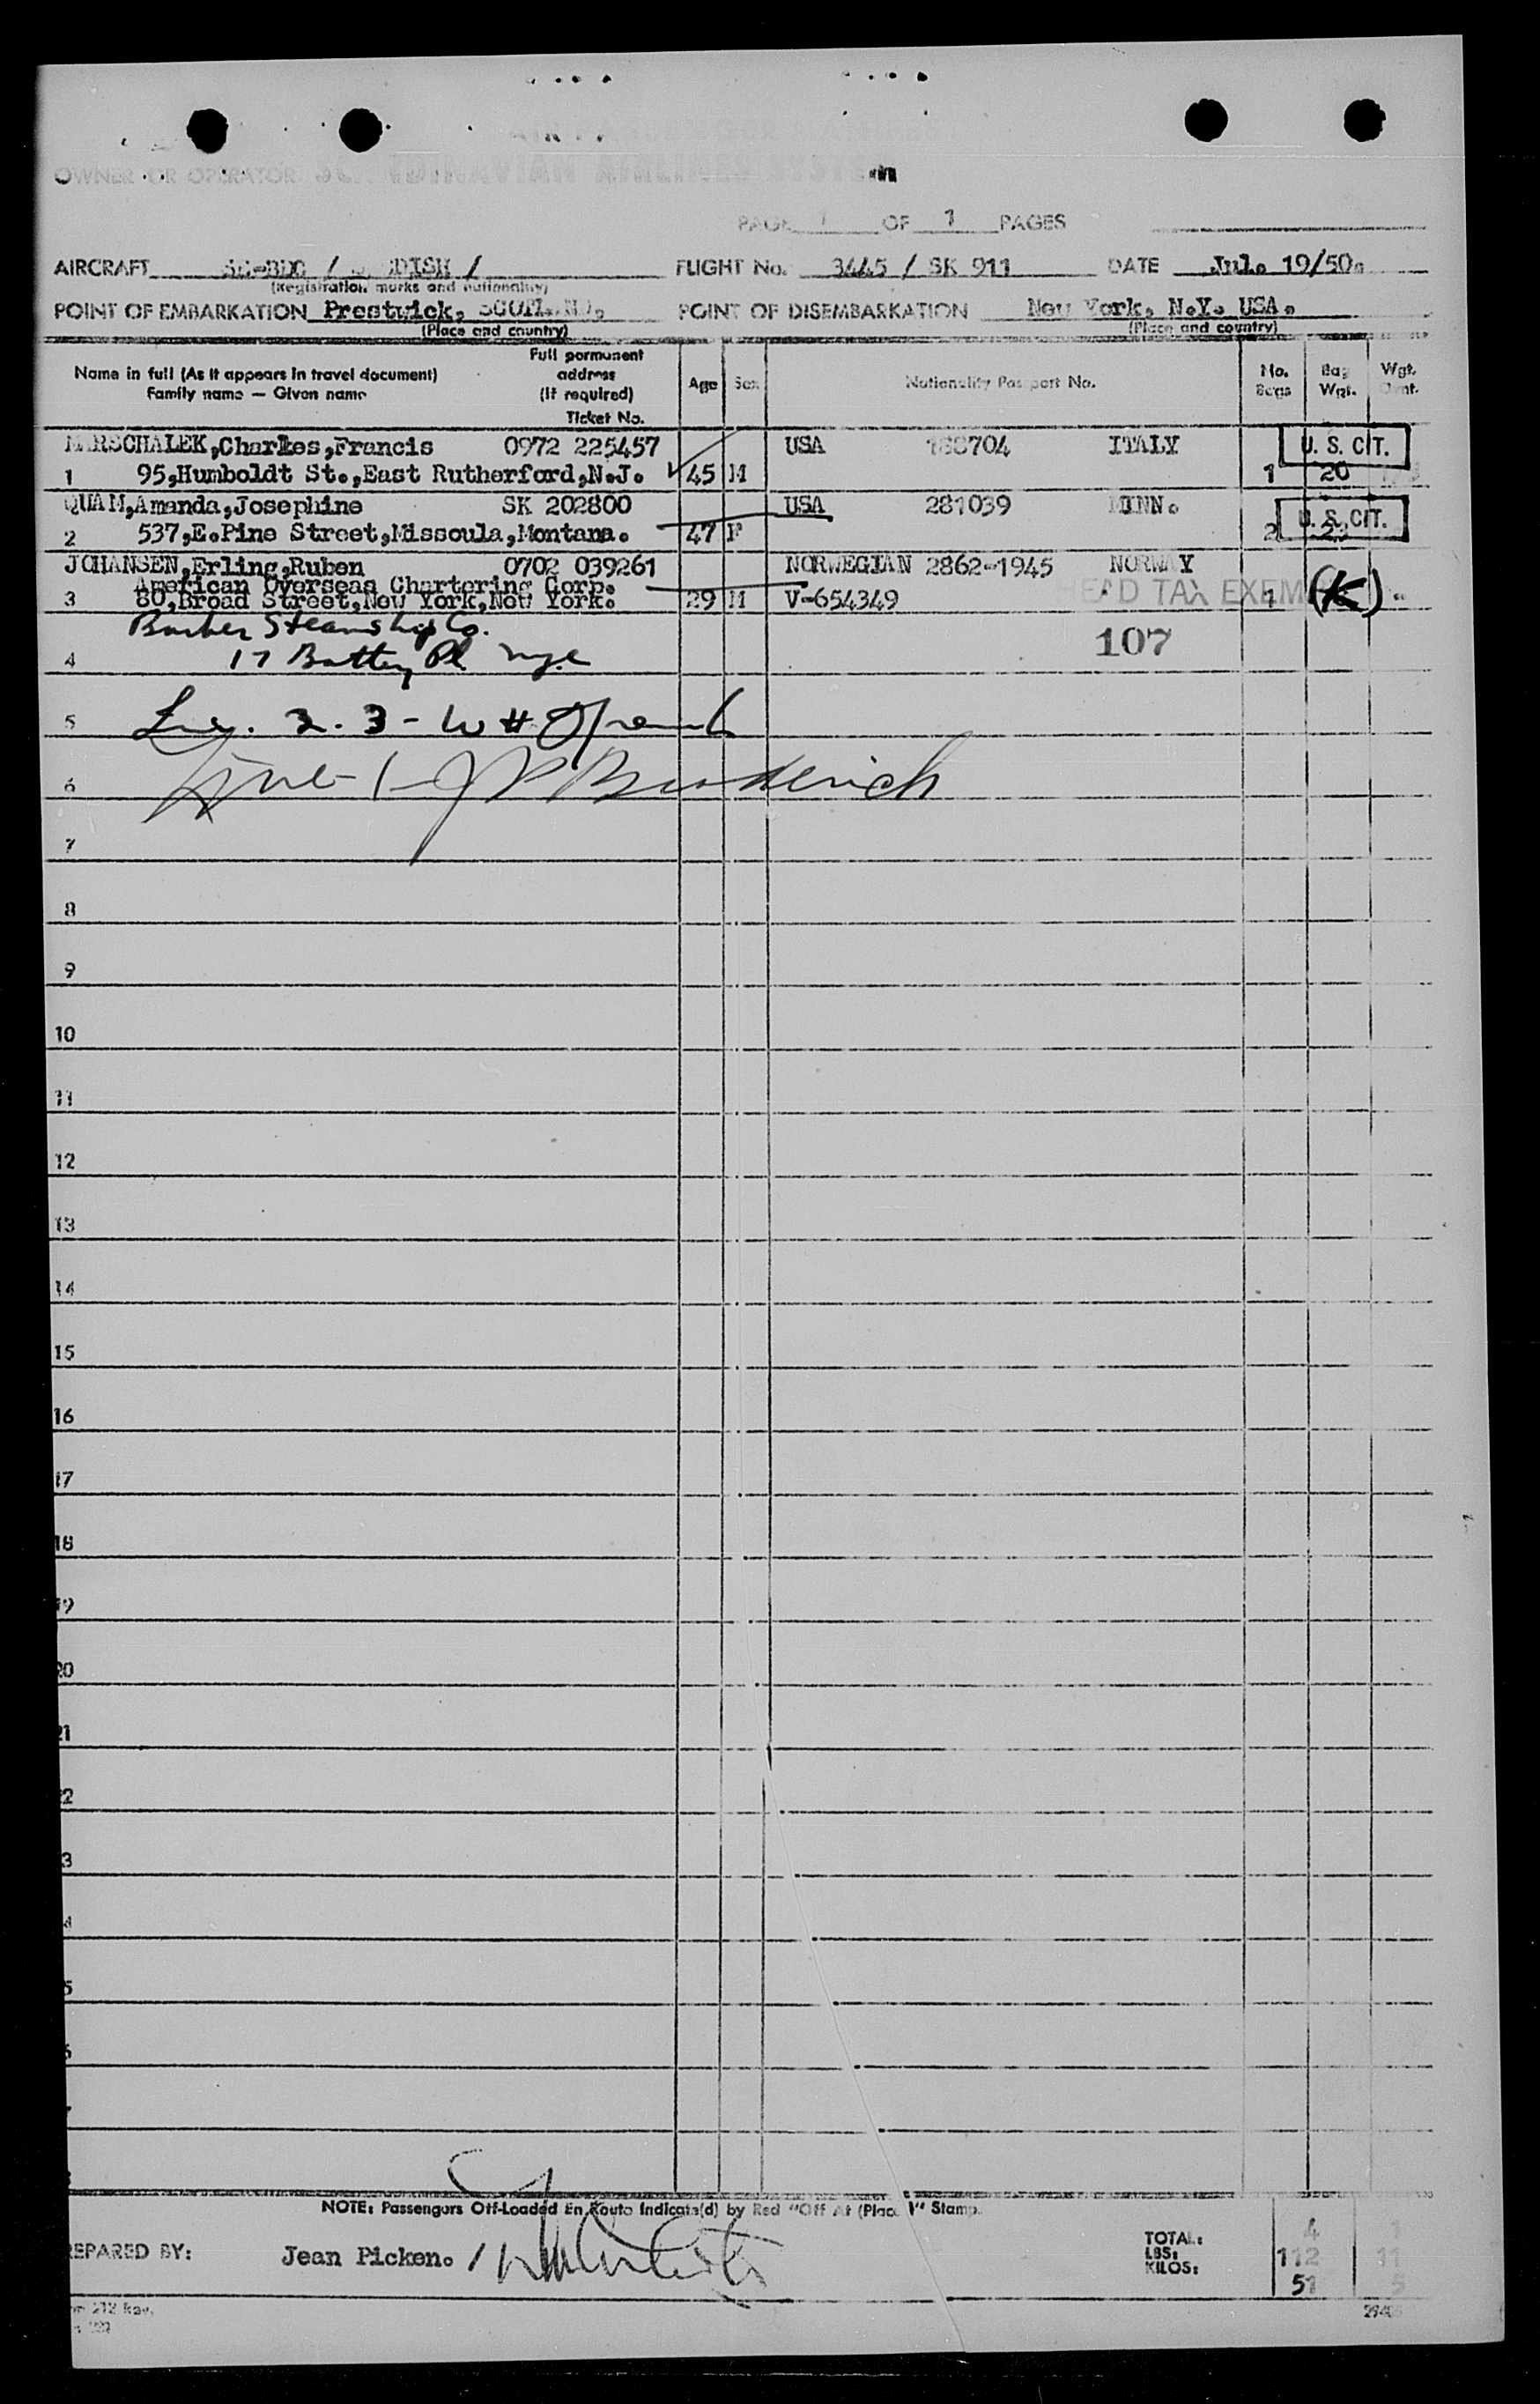 OWNER OR OPERATOR
PAGE 1 OF 1 PAGES
AIRCRAFT FLIGHT No. 3445 / SK 911 DATE Jul. 19/50.
(Registration marks and nationality)
POINT OF EMBARKATION Prestwick, POINT OF DISEMBARKATION New York, N.Y. USA.
(Place and country) (Place and country)
Name in full (As it appears in travel document)
Family name — Given name
Full permanent
address
(If required)
Ticket No.
Age Sex Nationality Passport No. No. Bags Bag Wgt. Wgt.
MARSCHALEK,Charles,Francis 0972 225457 USA ITALY U. S. CIT.
1 95,Humboldt St.,East Rutherford,N.J. 45 M 1 20
QUAM,Amanda,Josephine SK 202800 USA 281039 MINN. U. S. CIT.
2 537,E.Pine Street,Missoula,Montana. 47 F 2
JOHANSEN,Erling,Ruben 0702 039261 NORWEGIAN 2862-1945 NORWAY
American Overseas Chartering Corp. HEAD TAX EXEM
3 80,Broad Street,New York,New York. 29 M V-654349 1 (K)
Barber Steamship Co.
107
4 17 Battery Pl nyc
5
6 Line 1 - J P Broderick
7
8
9
10
11
12
13
14
15
16
17
18
19
20
21
22
3
4
5
NOTE: Passengers Off-Loaded En Route Indicate(d) by Red "Off At (Place)" Stamp.
EPARED BY: Jean Picken.
TOTAL: 4 1
LBS: 112 11
KILOS: 51 5